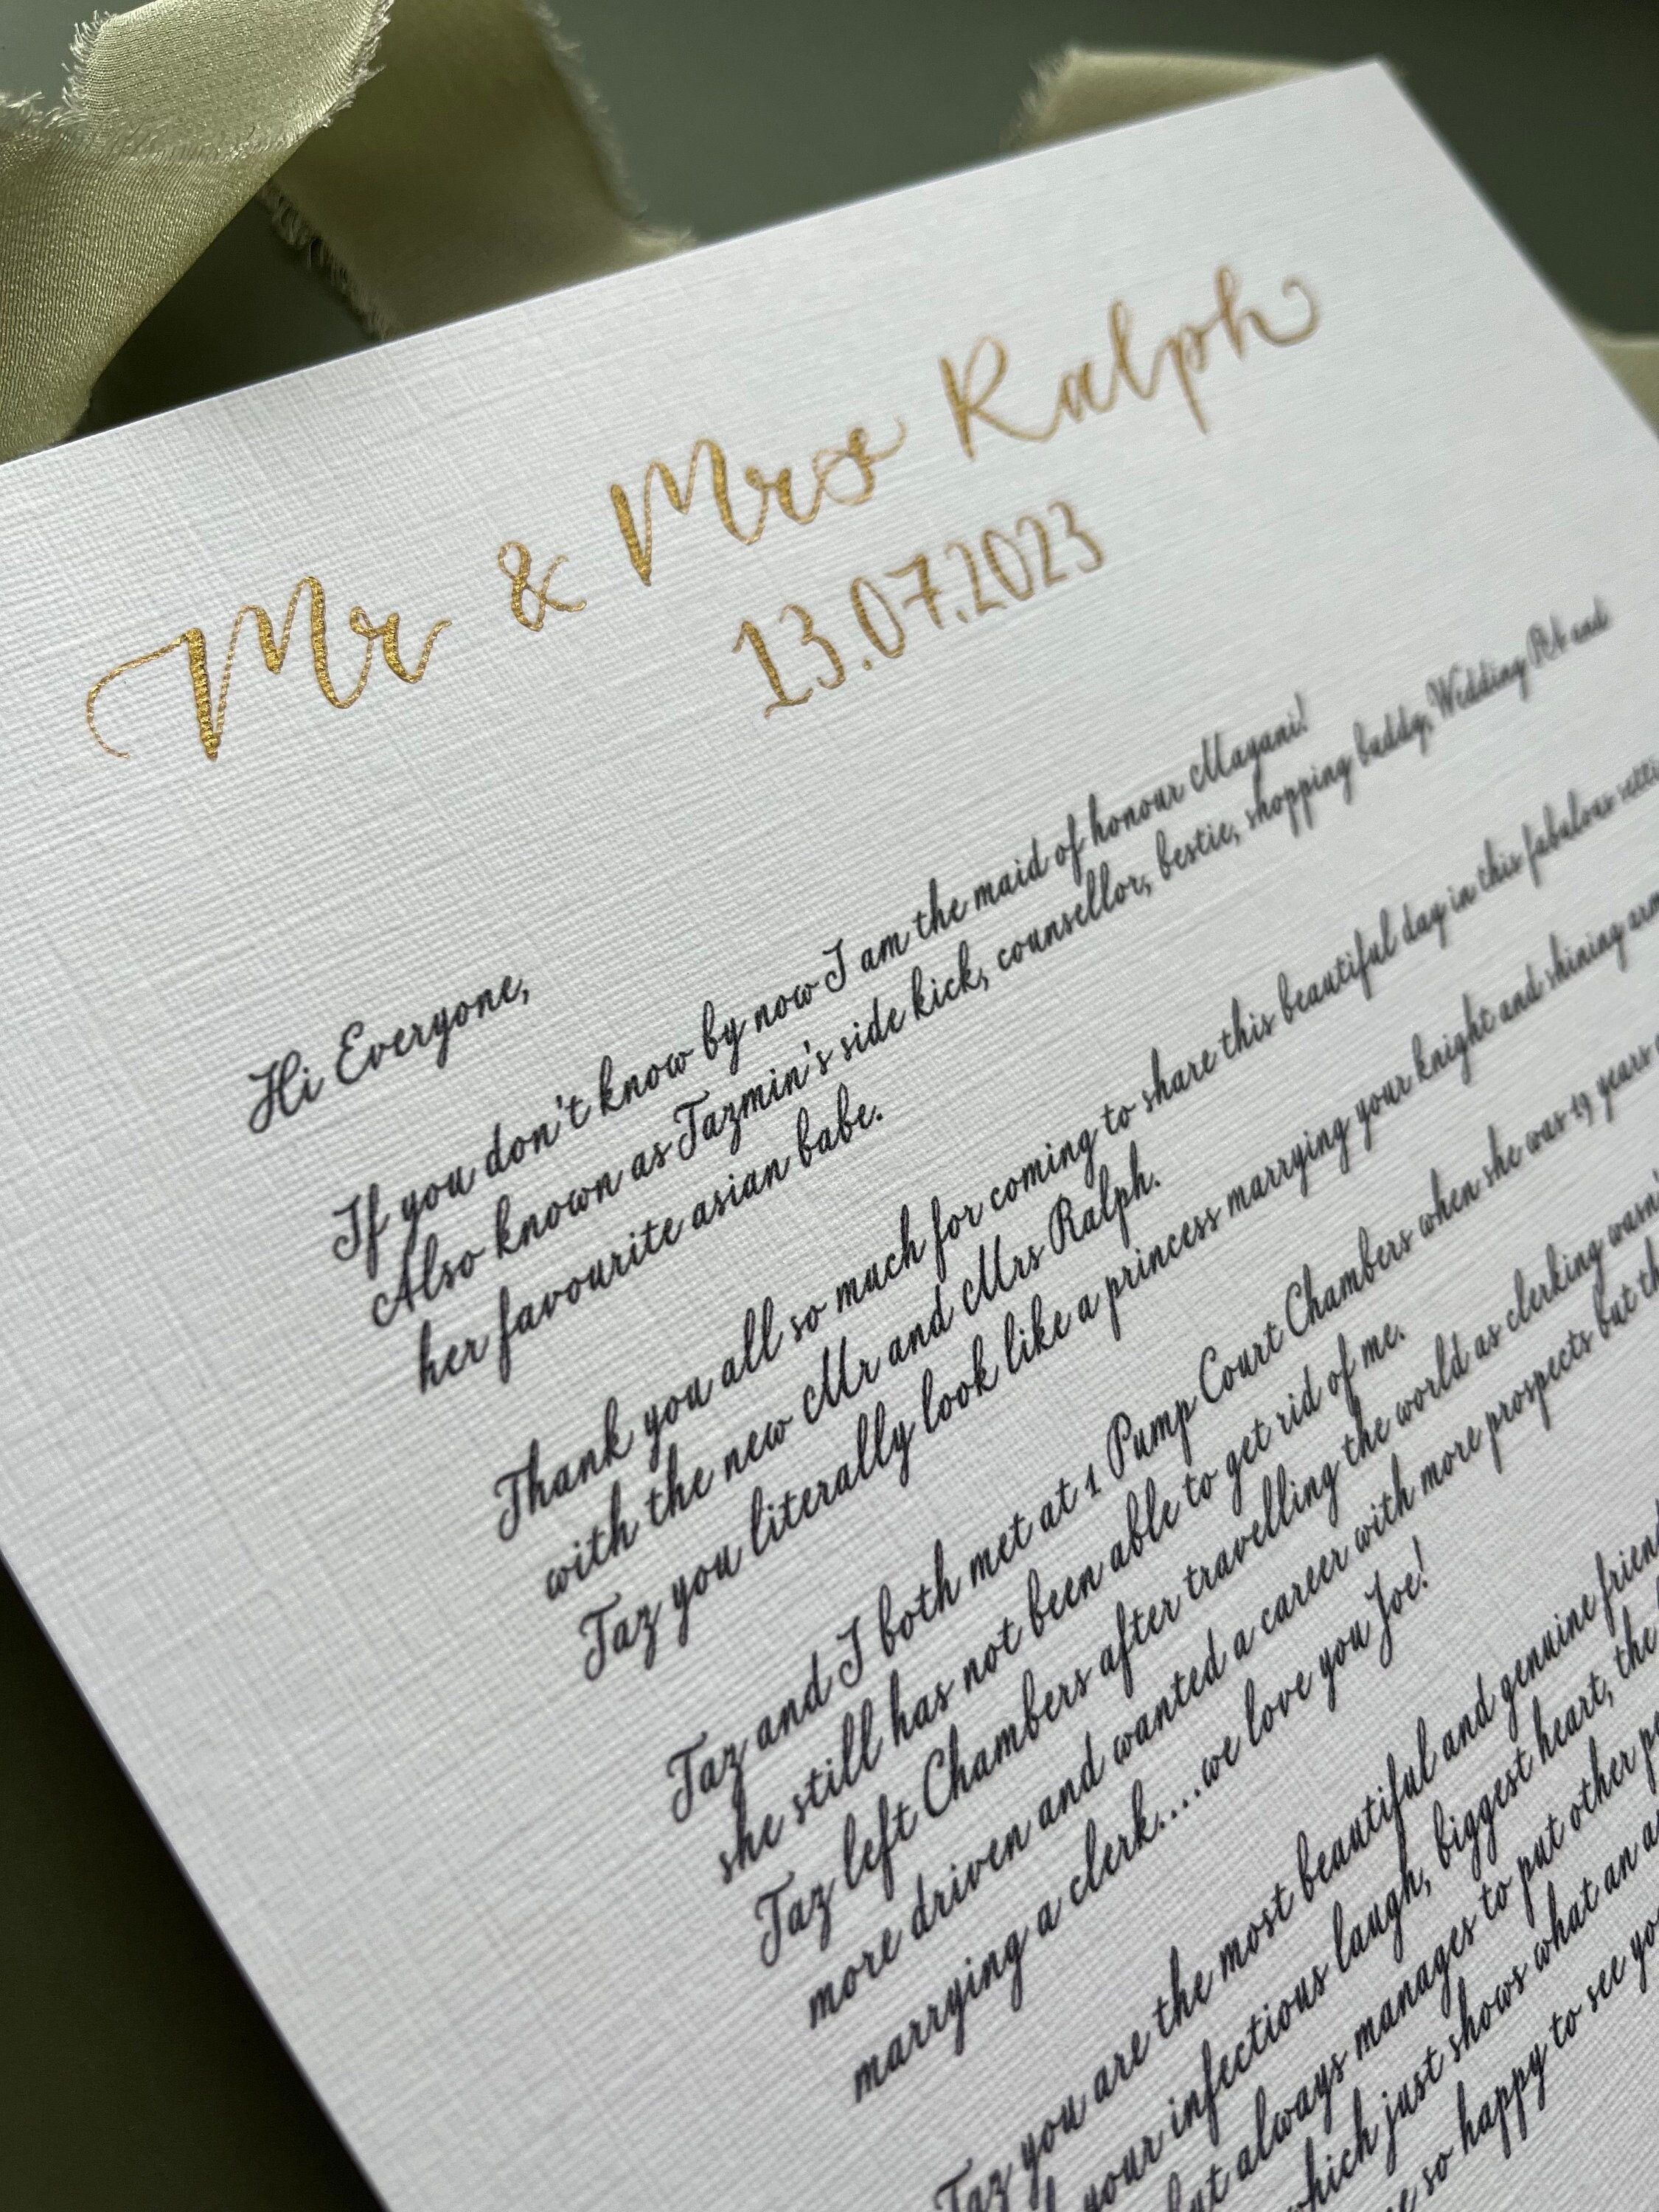 Mr & Mrs Ralph
13.07.2023
Hi Everyone,
If you don't know by now I am the maid of honour Mayani!
Also known as Tazmin's side kick, counsellor, bestie, shopping buddy, Wedding PA and
her favourite asian babe.
Thank you all so much for coming to share this beautiful day in this fabulous
with the new Mr and Mrs Ralph.
Taz you literally look like a princess marrying your knight and shining
Taz and I both met at 1 Pump Court Chambers when she was 19 years
she still has not been able to get rid of me.
Taz left Chambers after travelling the world as clerking
more driven and wanted a career with more prospects but
marrying a clerk....we love you Joe!
Taz you are the most beautiful and genuine
your infectious laugh, biggest heart, the
always manages to put other
just shows what an
so happy to see